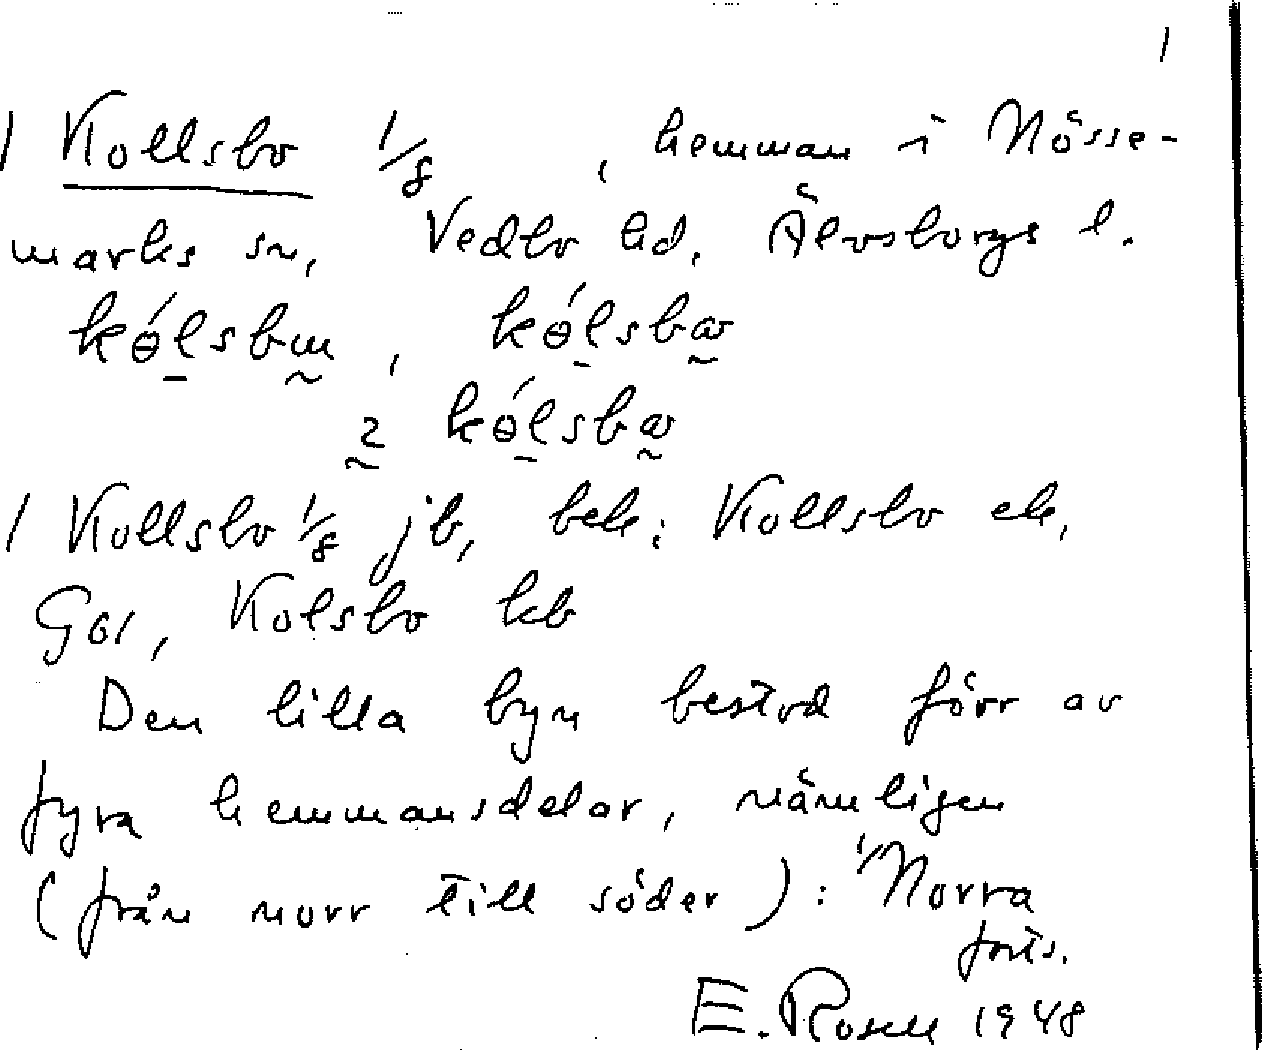 1
1 Kollsbo 1/8 , hemman i Nösse-
marks sn, Vedbo hd, Älvsborgs l.
kɵ́lsbɯ, kɵ́lsbꞷ
2 kɵ́lsbꞷ
1 Kollsbo 1/8 jb, bek: Kollsbo ek,
GS1, Kolsbo kb
Den lilla byn bestod förr av
fyra hemmansdelar, nämligen
(från norr till söder): "Norra
forts.
E. Rosell 1948